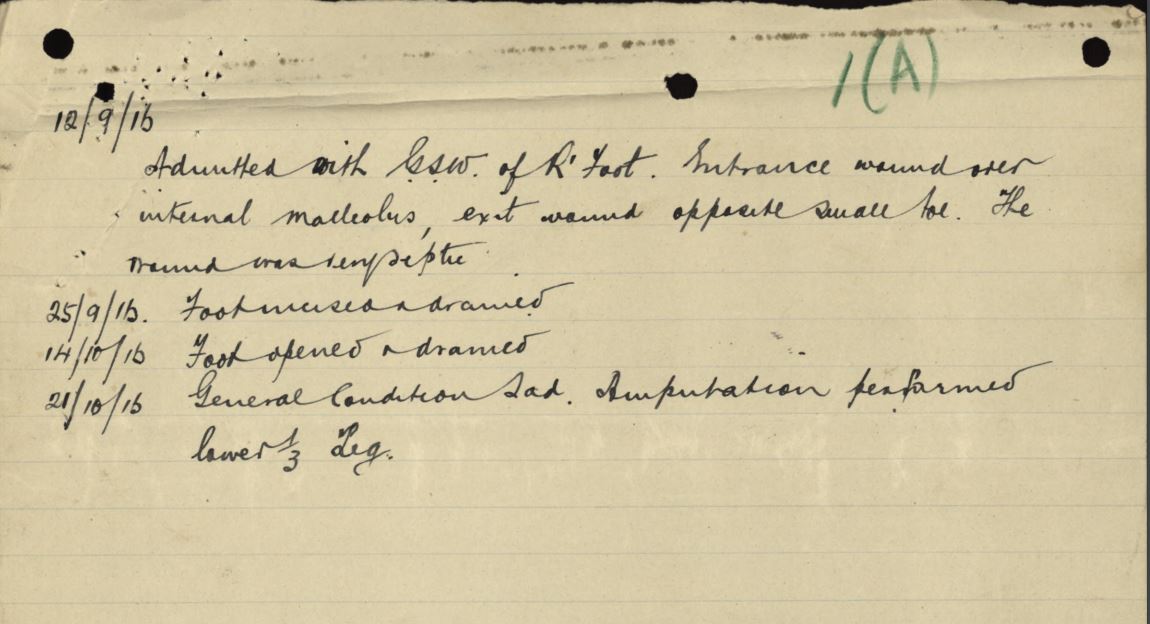 1(A)
12/9/16
Admitted with G.S.W. of R' Foot. Entrance wound over
internal malleolus, exit wound opposite small toe. The
wound was very septic
25/9/16. Foot incised & drained
14/10/16 Foot opened & drained
21/10/16 General Condition bad. Amputation performed
lower 1/3 Leg.